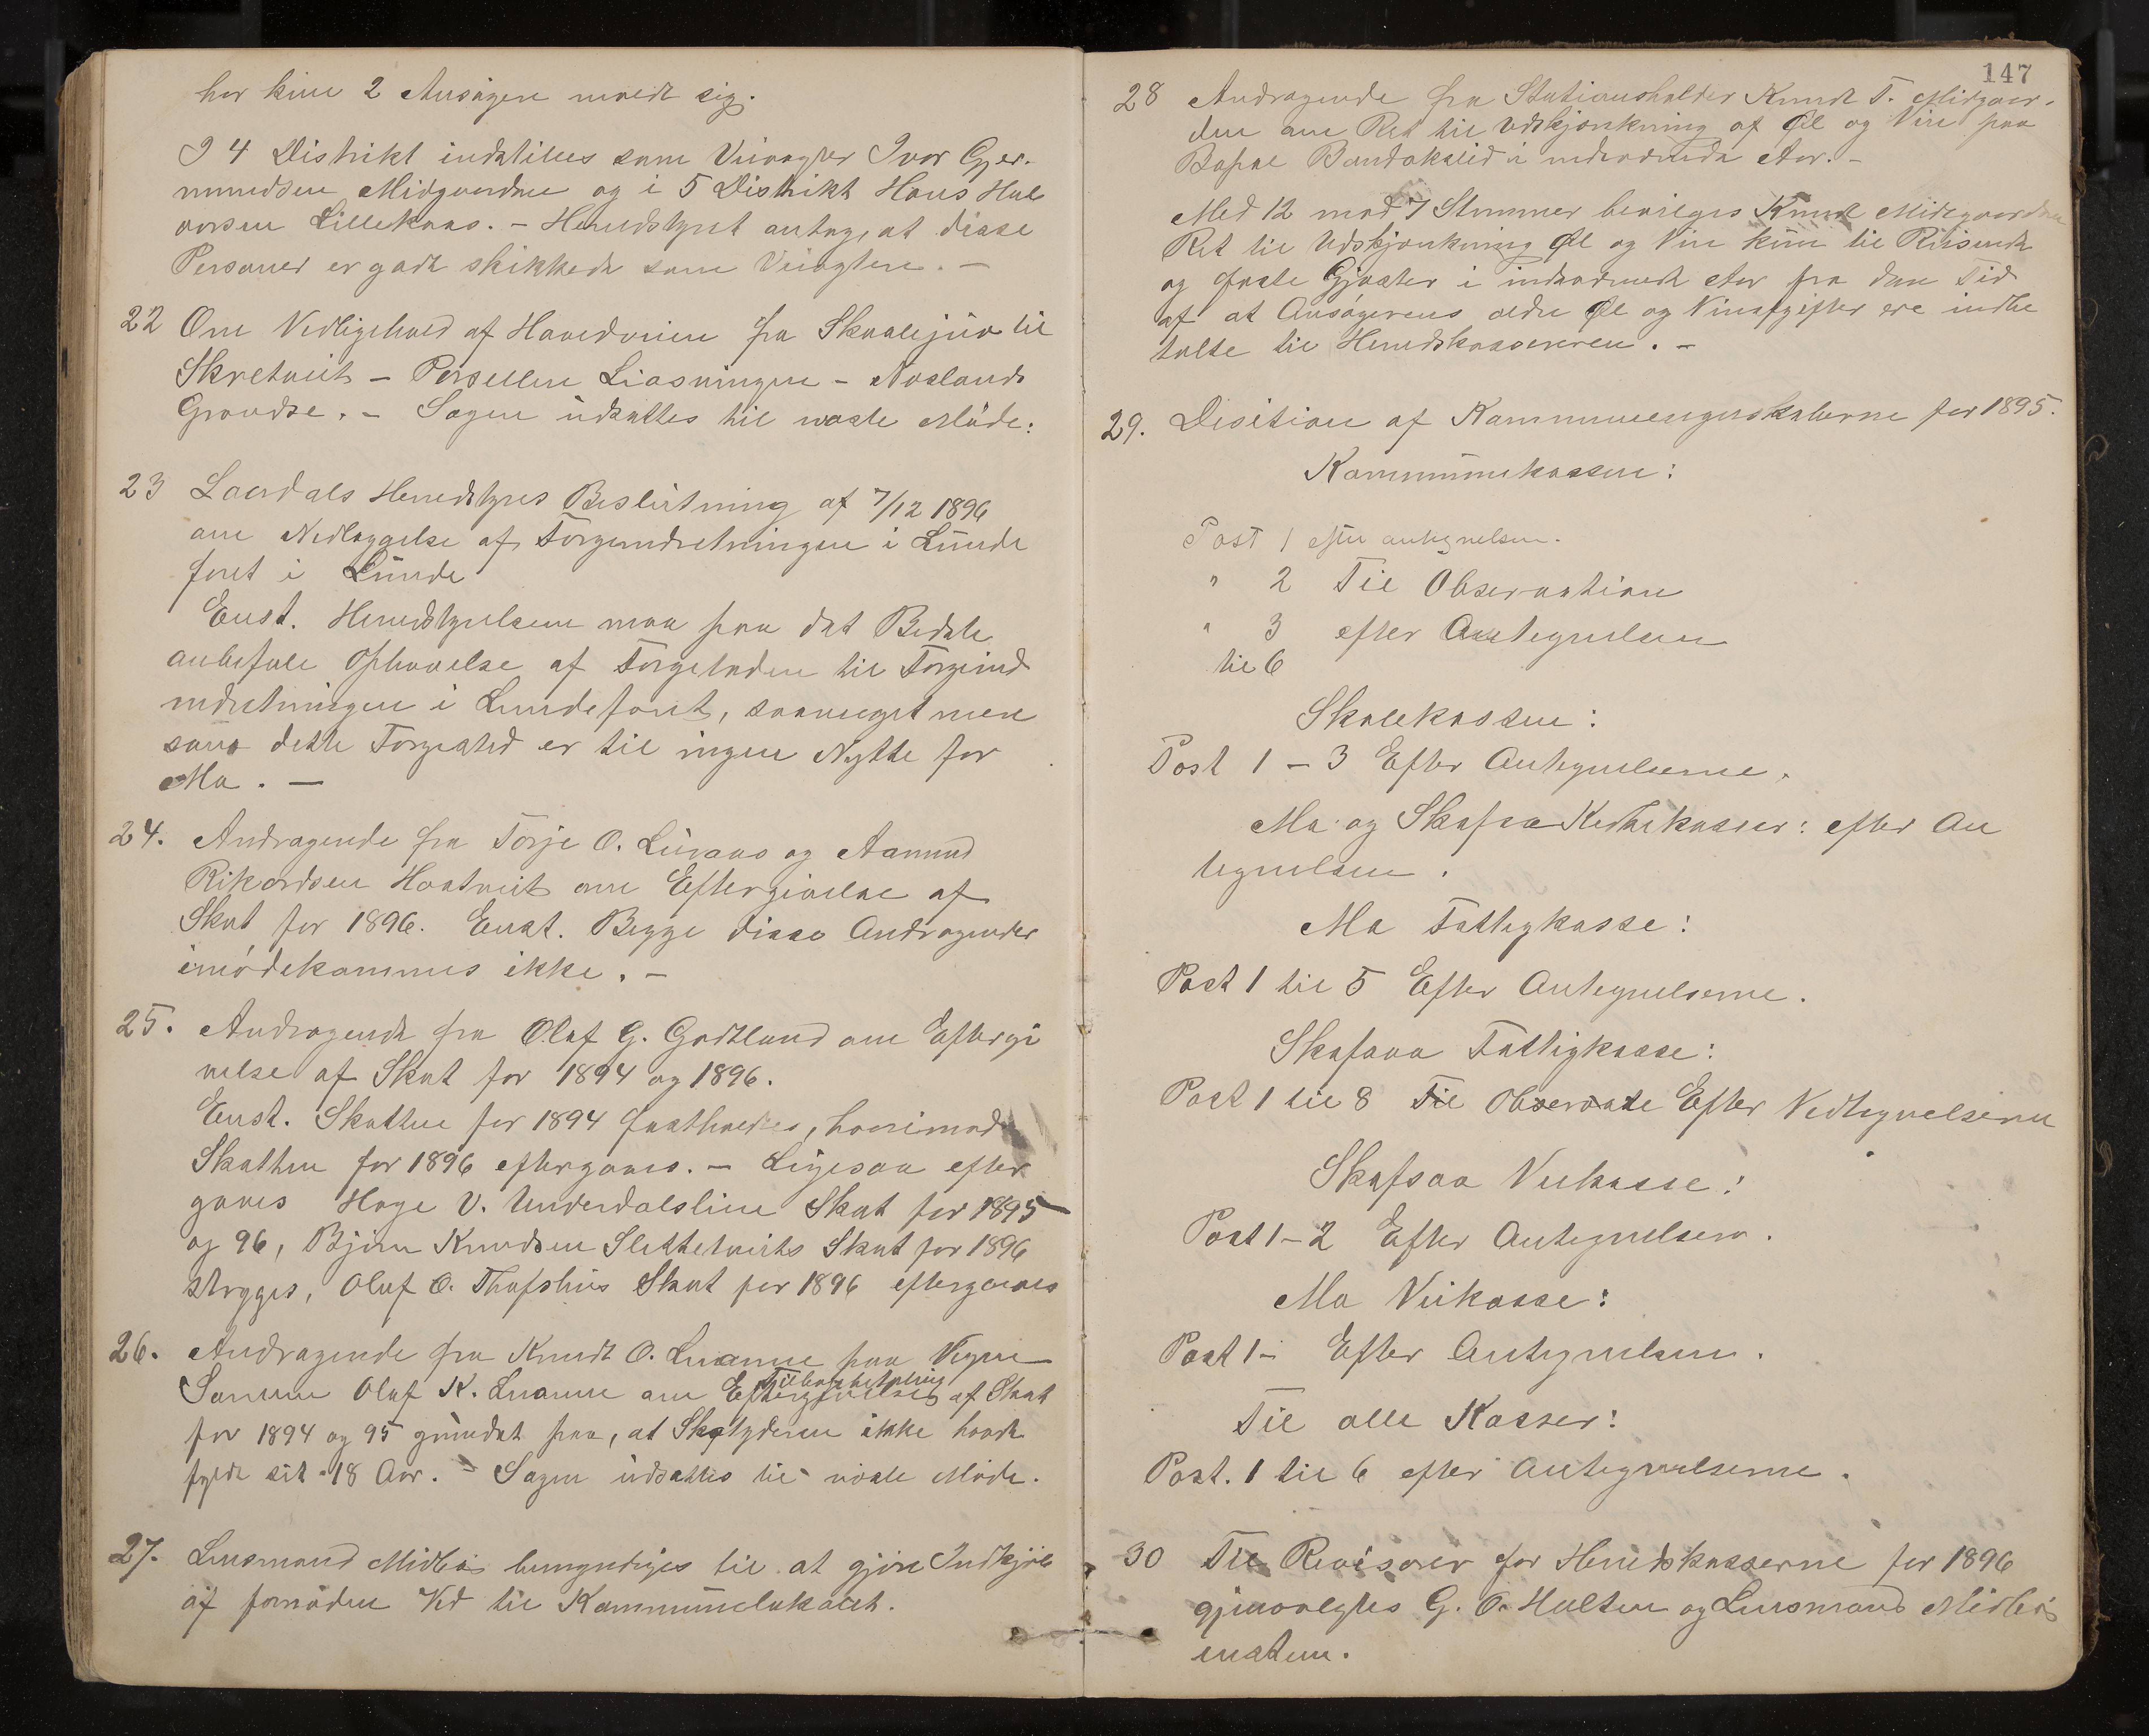 har kun 2 Ansøgere meldt sig.
I 4 Distrikt indstilles som Veivogter Ivar Gjer-
mundsen Midgaarden og i 5 Distrikt Hans Hal
vorsen Lillekaas. – Heredstyret antog, at disse
Personer er godt skikkede som Veivogtere. –
22 Om Vedligehold af Hovedveien fra Skaalejuv til
Skretveit – Parsellen Liosningen – Aaslands
Grændse. – Sagen udsattes til næste Møde:
23 Laurdals Heredstyres Beslutning af 7/12 1896
om Nedlæggelse af Torgeindretningen i Lunde
foret i Lunde
Enst. Heredstyrelsen maa paa det Bedste
anbefale Ophævelse af Torgeladen til Torgeind
indretningen i Lundeforet, saameget mere
som dette Torgested er til ingen Nytte for
Mo. –
24. Andragende fra Torje O. Luraas og Aamund
Rikardsen Hontveit om Eftergivelse af
Skat for 1896. Enst. Begge disse Andragender
imødekommes ikke. –
25. Andragende fra Olaf G. Godtland om Eftergi
velse af Skat for 1894 og 1896.
Enst. Skatten for 1894 fastholdes, hvorimod
Skatten for 1896 eftergaves. – Ligesaa efter
gaves Hage V. Underdalslien Skat for 1895
og 96, Bjørn Knudsen Slettetveits Skat for 1896
stryges, Oluf O. Thofshus Skat for 1896 eftergaves
26. Andragende fra Knudt O. Lraame paa Vegne
Tilbagebetaling
Sønnen Oluf K. Lraamen om Eftergivelse af Skat
for 1894 og 95 grundet paa, at Skatyderen ikke havde
fyldt sit 18 Aar. – Sagen udsattes til næste Møde.
27. Lensmand Midbø bemyndiges til at gjøre Indkjøb
af fornøden Ved til Kommunelokalet.
147
28 Andragende fra Stationsholder Knudt T. Midgaar-
den om Ret til Udskjænkning af Øl og Vin paa
Bopæl Bandakslid i indeværende Aar. –
Med 12 mod 7 Stemmer bevilges Knudt Midtgaarden
Ret til Udskjænkning Øl og Vin kun til Reisende
og faste Gjæster i indeværende Aar fra den Tid
af at Ansøgerens ældre Øl og Vinafgifter ere indbe
talte til Heredskassereren. –
29. Desition af Kommuneregnskaberne for 1895.
Kommunekassen:
Post 1 efter antegnelsen.
" 2 Til Observation
" 3 efter Antegnelsen
til 6
Skolekassen:
Post 1 – 3 Efter Antegnelserne.
Mo og Skafsaa Kirkekasser: efter An
tegnelsen.
Mo Fattigkasse:
Post 1 til 5 Efter Antegnelserne.
Skafsaa Fattigkasse:
Post 1 til 8 Til Observate Efter Vedtegnelserne
Skafsaa Veikasse:
Post 1–2 Efter Antegnelsern.
Mo Veikasse:
Post 1– Efter Antegnelsen.
Til alle Kasser:
Post. 1 til 6 efter Antegnelserne.
30 Til Revisorer for Heredskasserne for 1896
gjenvalgtes G. O. Holten og Lensmand Midbø
enstem.